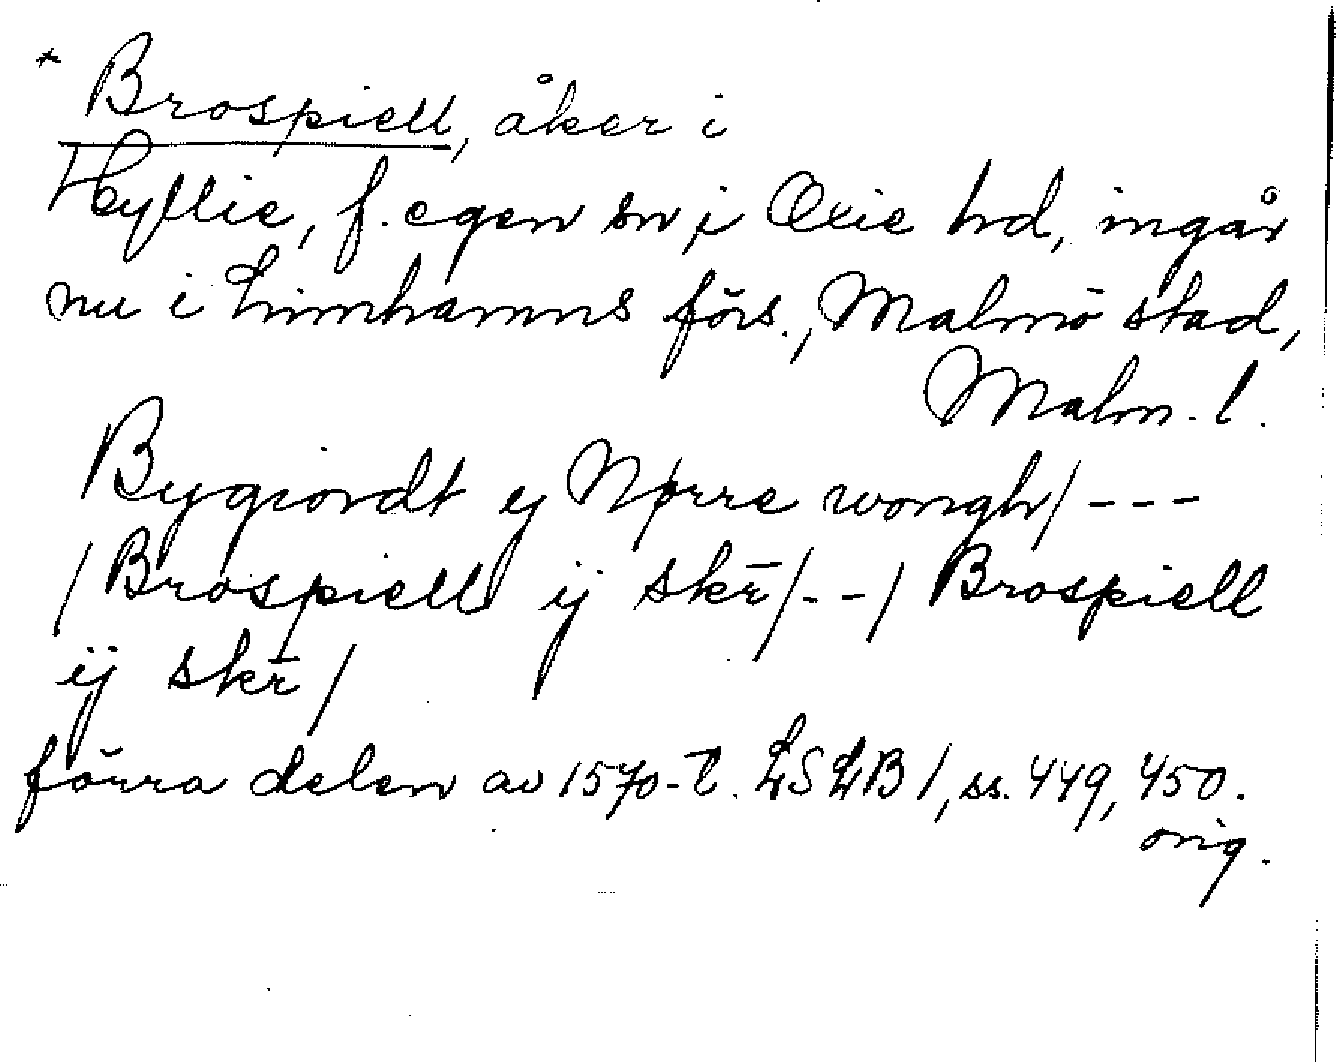 * Brospiell, åker i
Hyllie, f. egen sn i Oxie hd, ingår
nu i Limhamns förs., Malmö stad,
Malm. l.
Bygiordt ij Nørre wongh/ - - -
/ Brospiell ij skr̄/ - - / Brospiell
ij skr̄ /
förra delen av 1570-t. LSLB 1, ss. 449, 450.
orig.